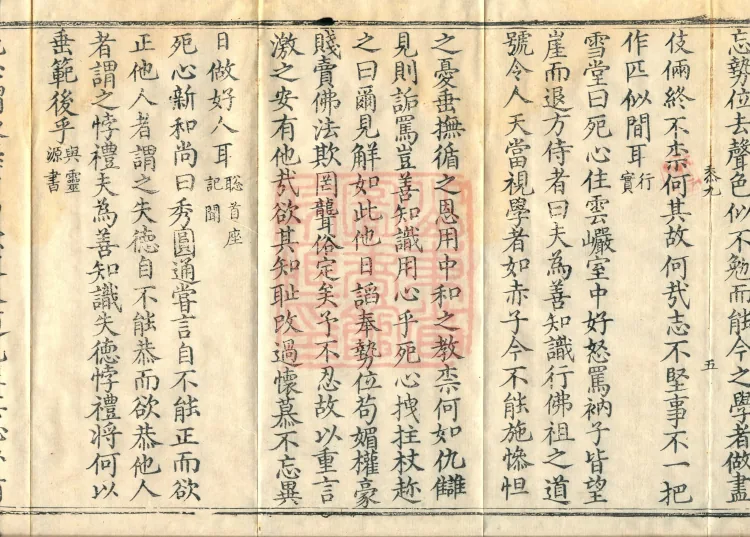 忘勢位去聲色似不勉而能今之學者做盡
伎倆終不柰何其故何㢤志不堅事不一把
作匹似間耳行實
雪堂曰死心住雲巖室中好怒罵衲子皆望
崖而退方侍者曰夫為善知識行佛祖之道
號令人天當視學者如赤子今不能施慘怛
之憂垂撫循之恩用中和之教柰何如仇讎
見則詬罵豈善知識用心乎死心拽拄杖趂
之曰爾見解如此他日謟奉勢位苟媚權豪
賤賣佛法欺罔聾俗定矣予不忍故以重言
激之安有他㢤欲其知耻改過懷慕不忘異
日做好人耳聡首座記聞
死心新和尚曰秀圓通甞言自不能正而欲
正他人者謂之失德自不能恭而欲恭他人
者謂之悖禮夫為善知識失德悖禮将何以
垂範後乎與靈源書
五